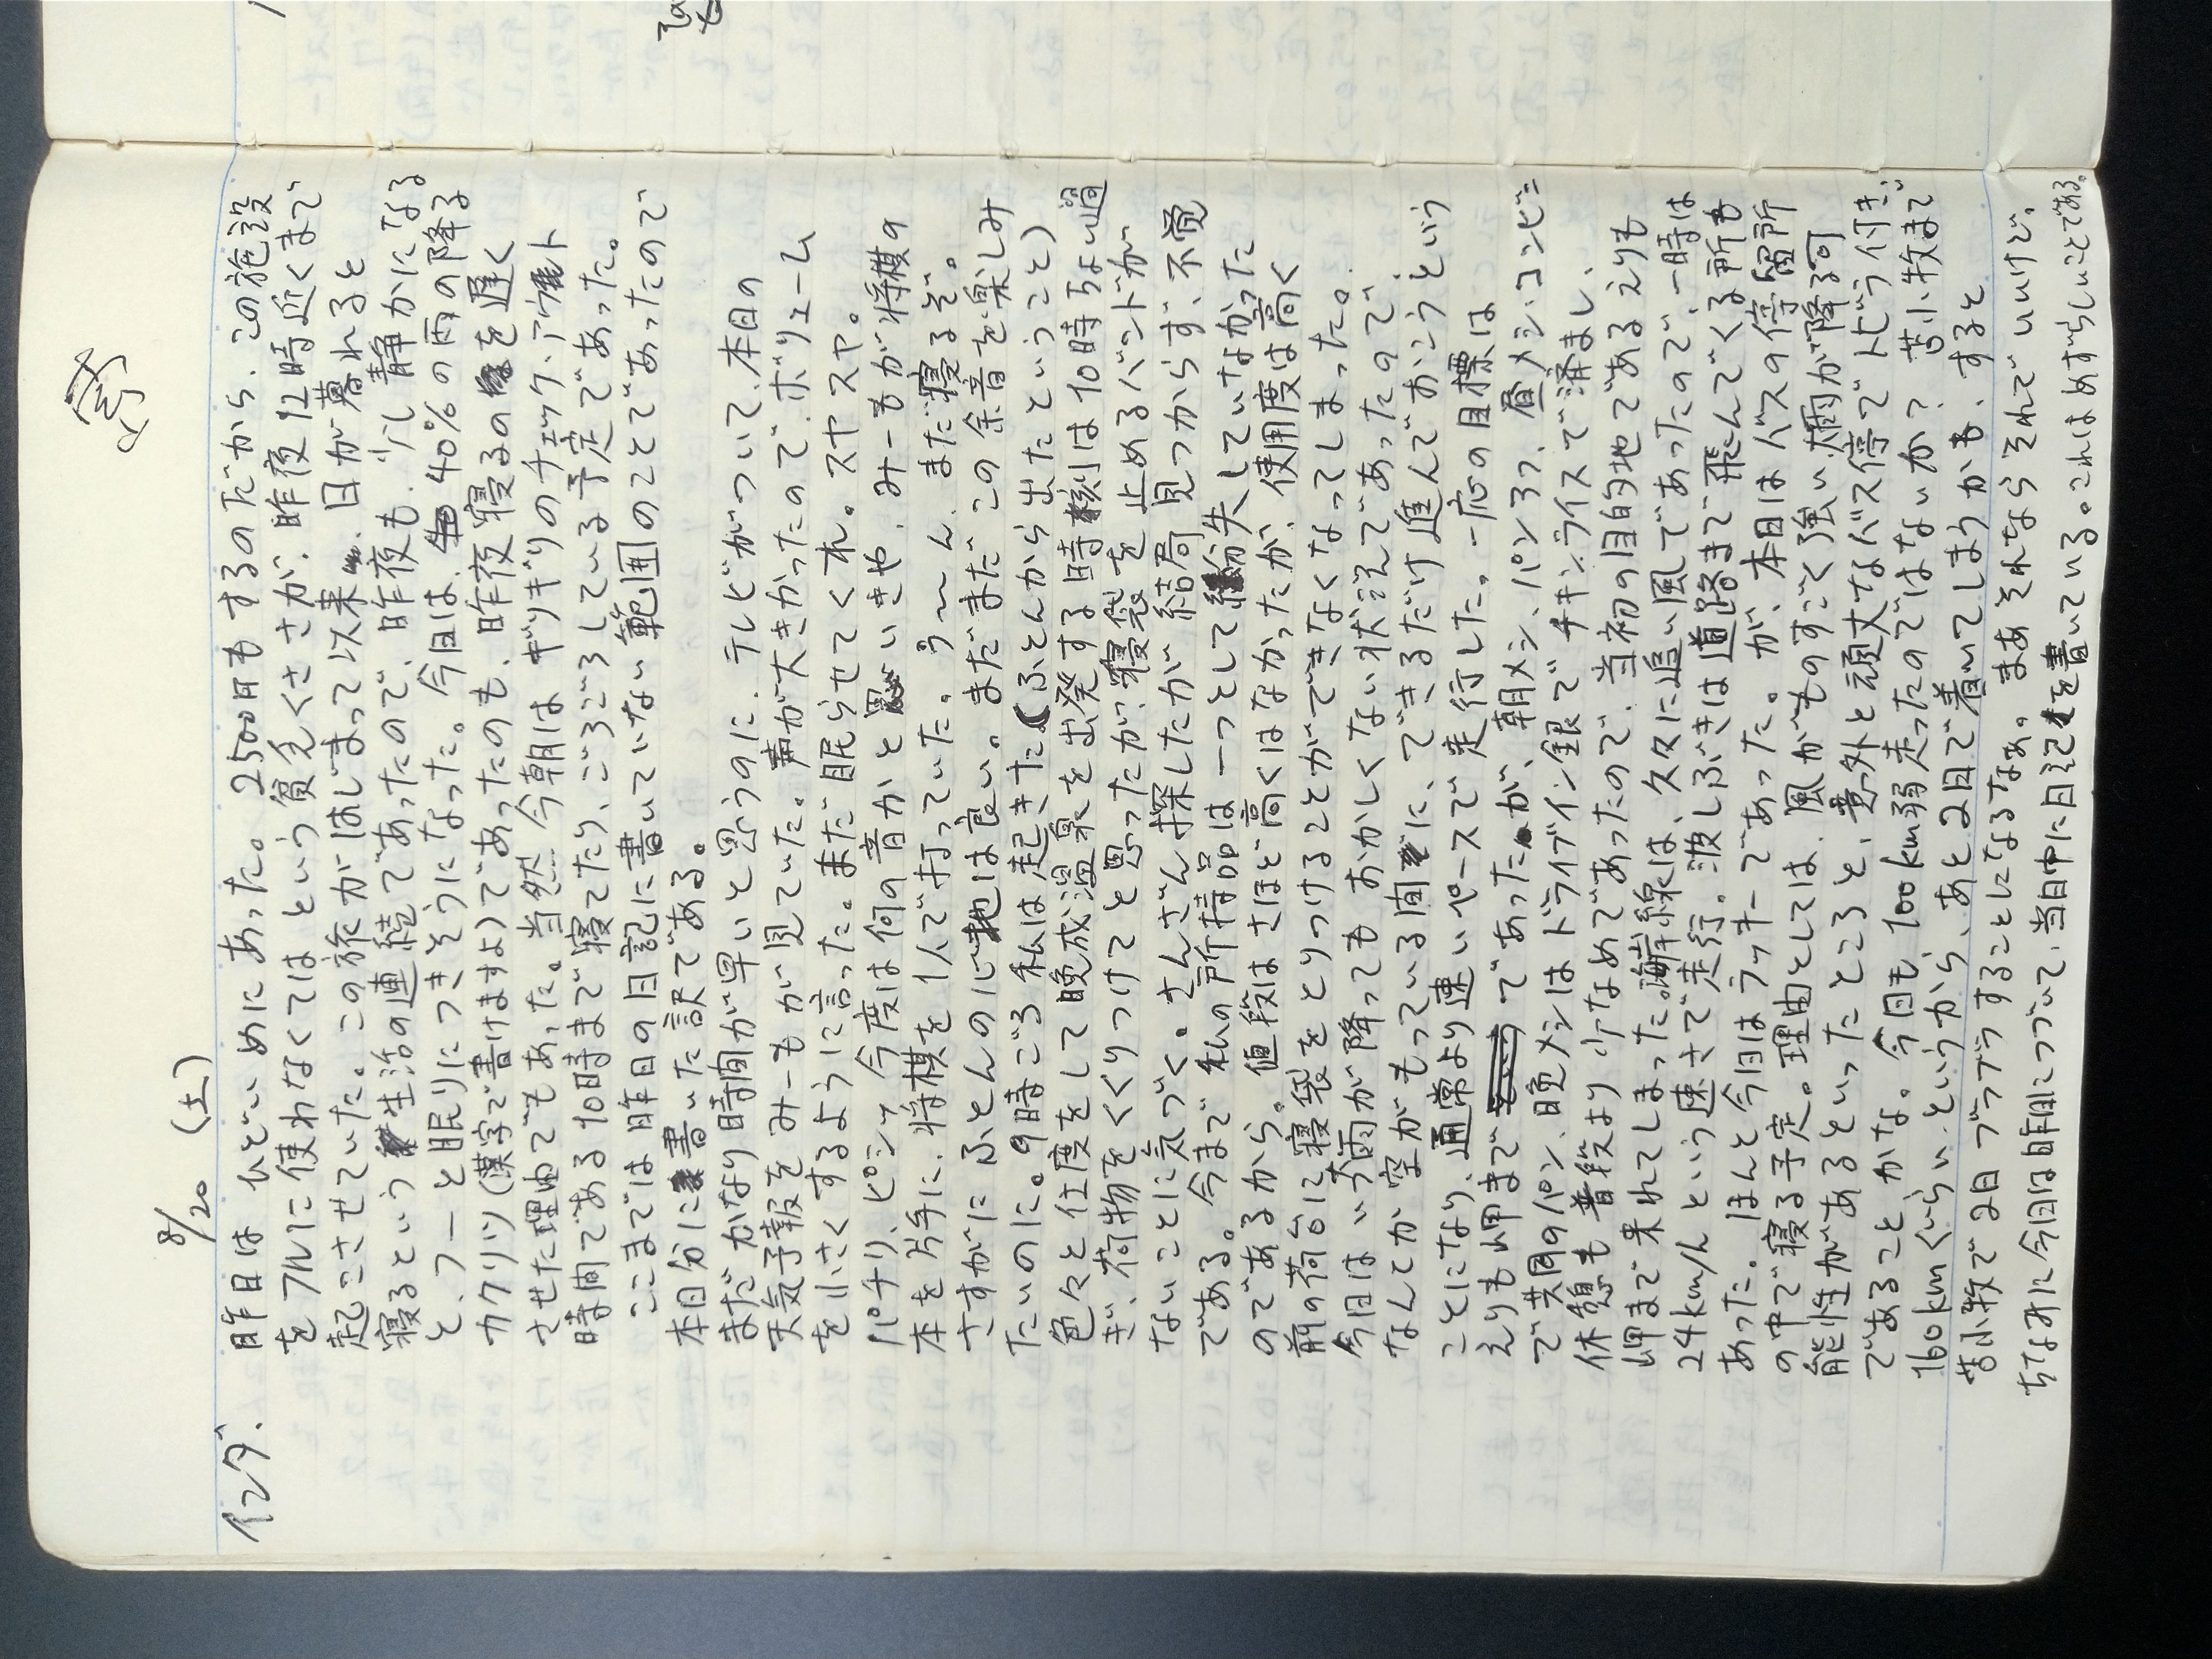 8/20 (土)
インダ、 昨日は ひどいめに あった。2500円もするのだから、この施設
をフルに使わなくてはという貧乏くささが、昨夜12時近くまで
起こさせていた。この旅がはじまって以来、日が暮れると
寝るという生活の連続であったので、昨夜も、少し静かになる
と、フーと眠りにつきそうになった。今日は、40%の雨の降る
カクリツ(漢字で書けますよ)であったのも、昨夜寝るのを遅く
させた理由でもあった。当然 今朝は ギリギリのチェック・アウト
時間である10時まで寝てたり、ごろごろしている予定であった。
ここまでは昨日の日記に書いていない範囲のことであったので
本日分に書いた訳である。
まだかなり時間が早いと思うのに、テレビがついて、本日の
天気予報をみーもが見ていた。声が大きかったので、ボリューム
を小さくするように言った。まだ眠らせてくれ。スヤスヤ。
パチリ、ピシッ 今度は何の音かと思いきや、みーもが将棋の
本を片手に、将棋を1人で打っていた。う〜ん、まだ寝るぞ。
さすがに ふとんの心地は良い。まだまだ この余音を楽しみ
たいのに。9時ごろ私は起きた(ふとんから出たということ)
色々と仕度をして晩成温泉を出発する時刻は10時ちょい過
ぎ、荷物をくくりつけてと思ったが、寝袋を止めるバンドが
ないことに気づく。さんざん探したが結局見つからず、不覚
である。今まで私の所持品は一つとして紛失していなかった
のであるから。値段はさほど高くはなかったが、使用度は高く
前の荷台に寝袋をとりつけることができなくなってしまった。
今日はいつ雨が降ってもおかしくない状況であったので、
なんてか空がもっている間に、できるだけ進んでおこうという
ことになり、通常より速いペースで走行した。一応の目標は
えりも岬までであったが、朝メシ、パン3つ、昼メシ、コンビニ
で共同のパン、晩メシはドライブイン銀でチキンライスで済まし、
休憩も普段より少なめであったので、当初の目的地であるえりも
岬まで来れてしまった。海岸線は、久々に追い風であったので、一時は
24km/hという速さで走行。波しぶきは道路まで飛んでくる所も
あった。ほんと今日はラッキーであった。が、本日はバスの停留所
の中で寝る予定。理由としては、風がものすごく強い、大雨が降る可
能性があるといったところと、意外と頑丈なバス停でトビラ付き、
であることかな。今日も、100km弱走ったのではないか？ 苫小牧まで
160kmぐらい、というから、あと2日で着いてしまうかも、すると
苫小牧で2日ブラブラすることになるなぁ。まあそれならそれでいいけど、
ちなみに今日は昨日につづいて、当日中に日記を書いている。これはめずらしいことである。